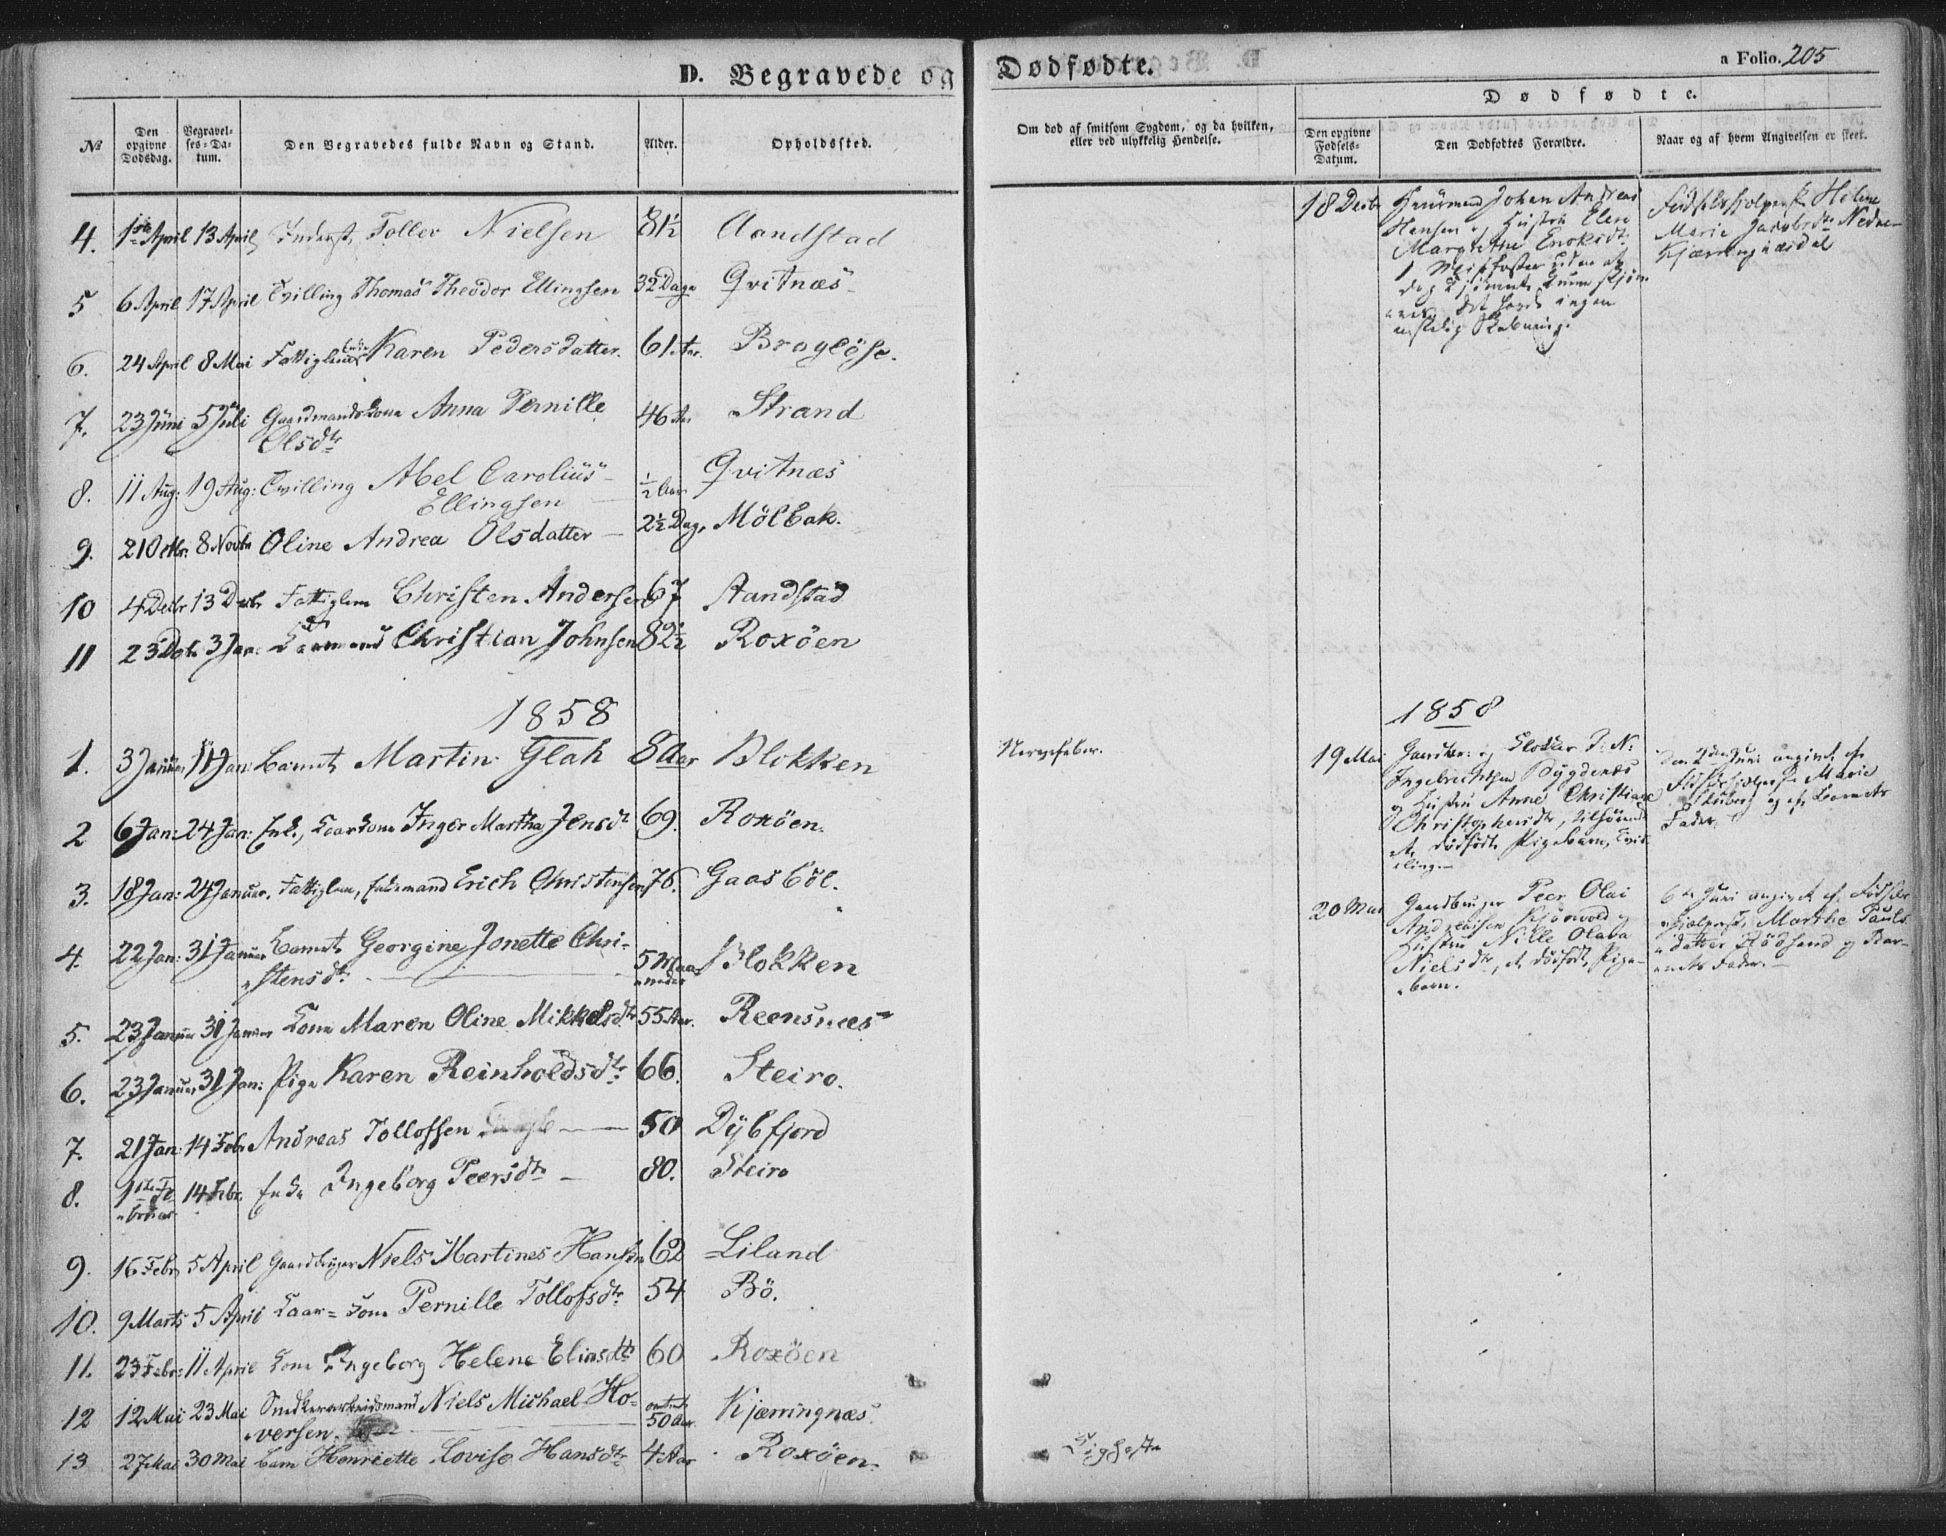 D. Begravede og Dødfødte.
a Folio. 205
Dødfødte.
№
Den opgivne Dødsdag.
Begravel-ses-Da-tum.
Den Begravedes fulde Navn og Stand.
Alder.
Opholdssted.
Om død af smitsom Sygdom, og da hvilken, eller ved ulykkelig Hendelse.
Den opgivne Fødsels-Datum.
Den Dødfødtes Forældre.
Naar og af hvem Angivelsen er skeet.
4. 1ste April 13 April Inderst, Toller Nielsen 81½ Aandstad
5 6 April 17 April Tvilling Thomas Theodor Ellingsen 32 Dage Qvitnæs
6. 24 April 8 Mai Fattiglem Enke Karen Pedersdatter. 61 Aar. Brogløse.
7. 23 Juni 5 Juli Gaardmandskone Anna Pernille 46 Aar Strand
Olsdtr
8. 11 Aug: 19 Aug: Tvilling Abel Carolius ½ Aar Qvitnæs
Ellingsen
9. 21 Octbr: 8 Novbr Oline Andrea Olsdatter 2½ Dage Mölbak.
10 4 Decbr 13 Decbr Fattiglem Christen Andersen 67 Aandstad
11 23 Dcbr 3 Jan: Kaarmand Christian Johnsen 82½ Roxöen
1858
1. 3 Januar 11 Jan: Barnet Martin Glah 8 Aar Blokken
2 6 Jan: 24 Jan: Enke, Kaarkone Inger Martha Jensdtr 69. Roxöen.
3. 18 Jan: 24 Januar. Fattiglem, Enkemand Erich Christensen 76. Gaasböl.
4. 22 Jan: 31 Januar Barnet Georgine Jonette Chri- 5 Maa- Blokken
stensdtr. neder
5. 23 Januar 31 Januar Kone Maren Oline Mikkelsdtr 55 Aar. Reensnæs
6. 23 Januar 31 Jan: Pige Karen Reinholdsdtr. 66. Steiro.
7. 21 Jan: 14 Febr Andreas Tollofsen 50 Dybfjord
8. 1ste Fe- 14 Febr. Enke Ingeborg Peersdtr 80. Steiro
bruar
9. 16 Febr 5 April Gaardbruger Niels Martines Hansen 62 Liland
10. 9 Marts 5 April Kaar-kone Pernille Tollofsdtr. 54 Bö.
11. 23 Febr: 11 April Kone Ingeborg Helene Eliasdtr 60 Roxöen
12 12 Mai 23 Mai Snedkerarbeidsmand Niels Michael Ho- omtrent Kjærringnæs.
versen. 50 Aar.
13 27 Mai 30 Mai Barn Henriette Lovise Hansdtr 4 Aar. Roxöen.
Nervefeber.
18 Decbr Huusmand Johan Andreas
Hansen og Hustru Elen
Margrethe Enoksdtr.
1 Misfoster uden at
menskelig Skabning.
Fødselshjelperske Helene
Marie Jacobsdtr Nedre
Kjærringnæsdal
1858
19 Mai Gaardbr: og Klokker P: N:
Ingebrichtsen Bygdenæs
og Hustru Anne Christiane
Christophersdtr,
et dødfødt Pigebarn, Tvil-
ling.
Den 2den Juni angivet af
Fødselshjelperske Marie
Stuberg og af Barnets
Fader.
20 Mai Gaardbruger Peer Olai
Andreassen Kjörvold og
Hustru Nille Olava
Nielsdtr, et dødfødt Pige-
barn.
6te Juni angivet af Fødsels-
hjelperske Marthe Pauls-
datter Flödsand og Bar-
nets Fader.